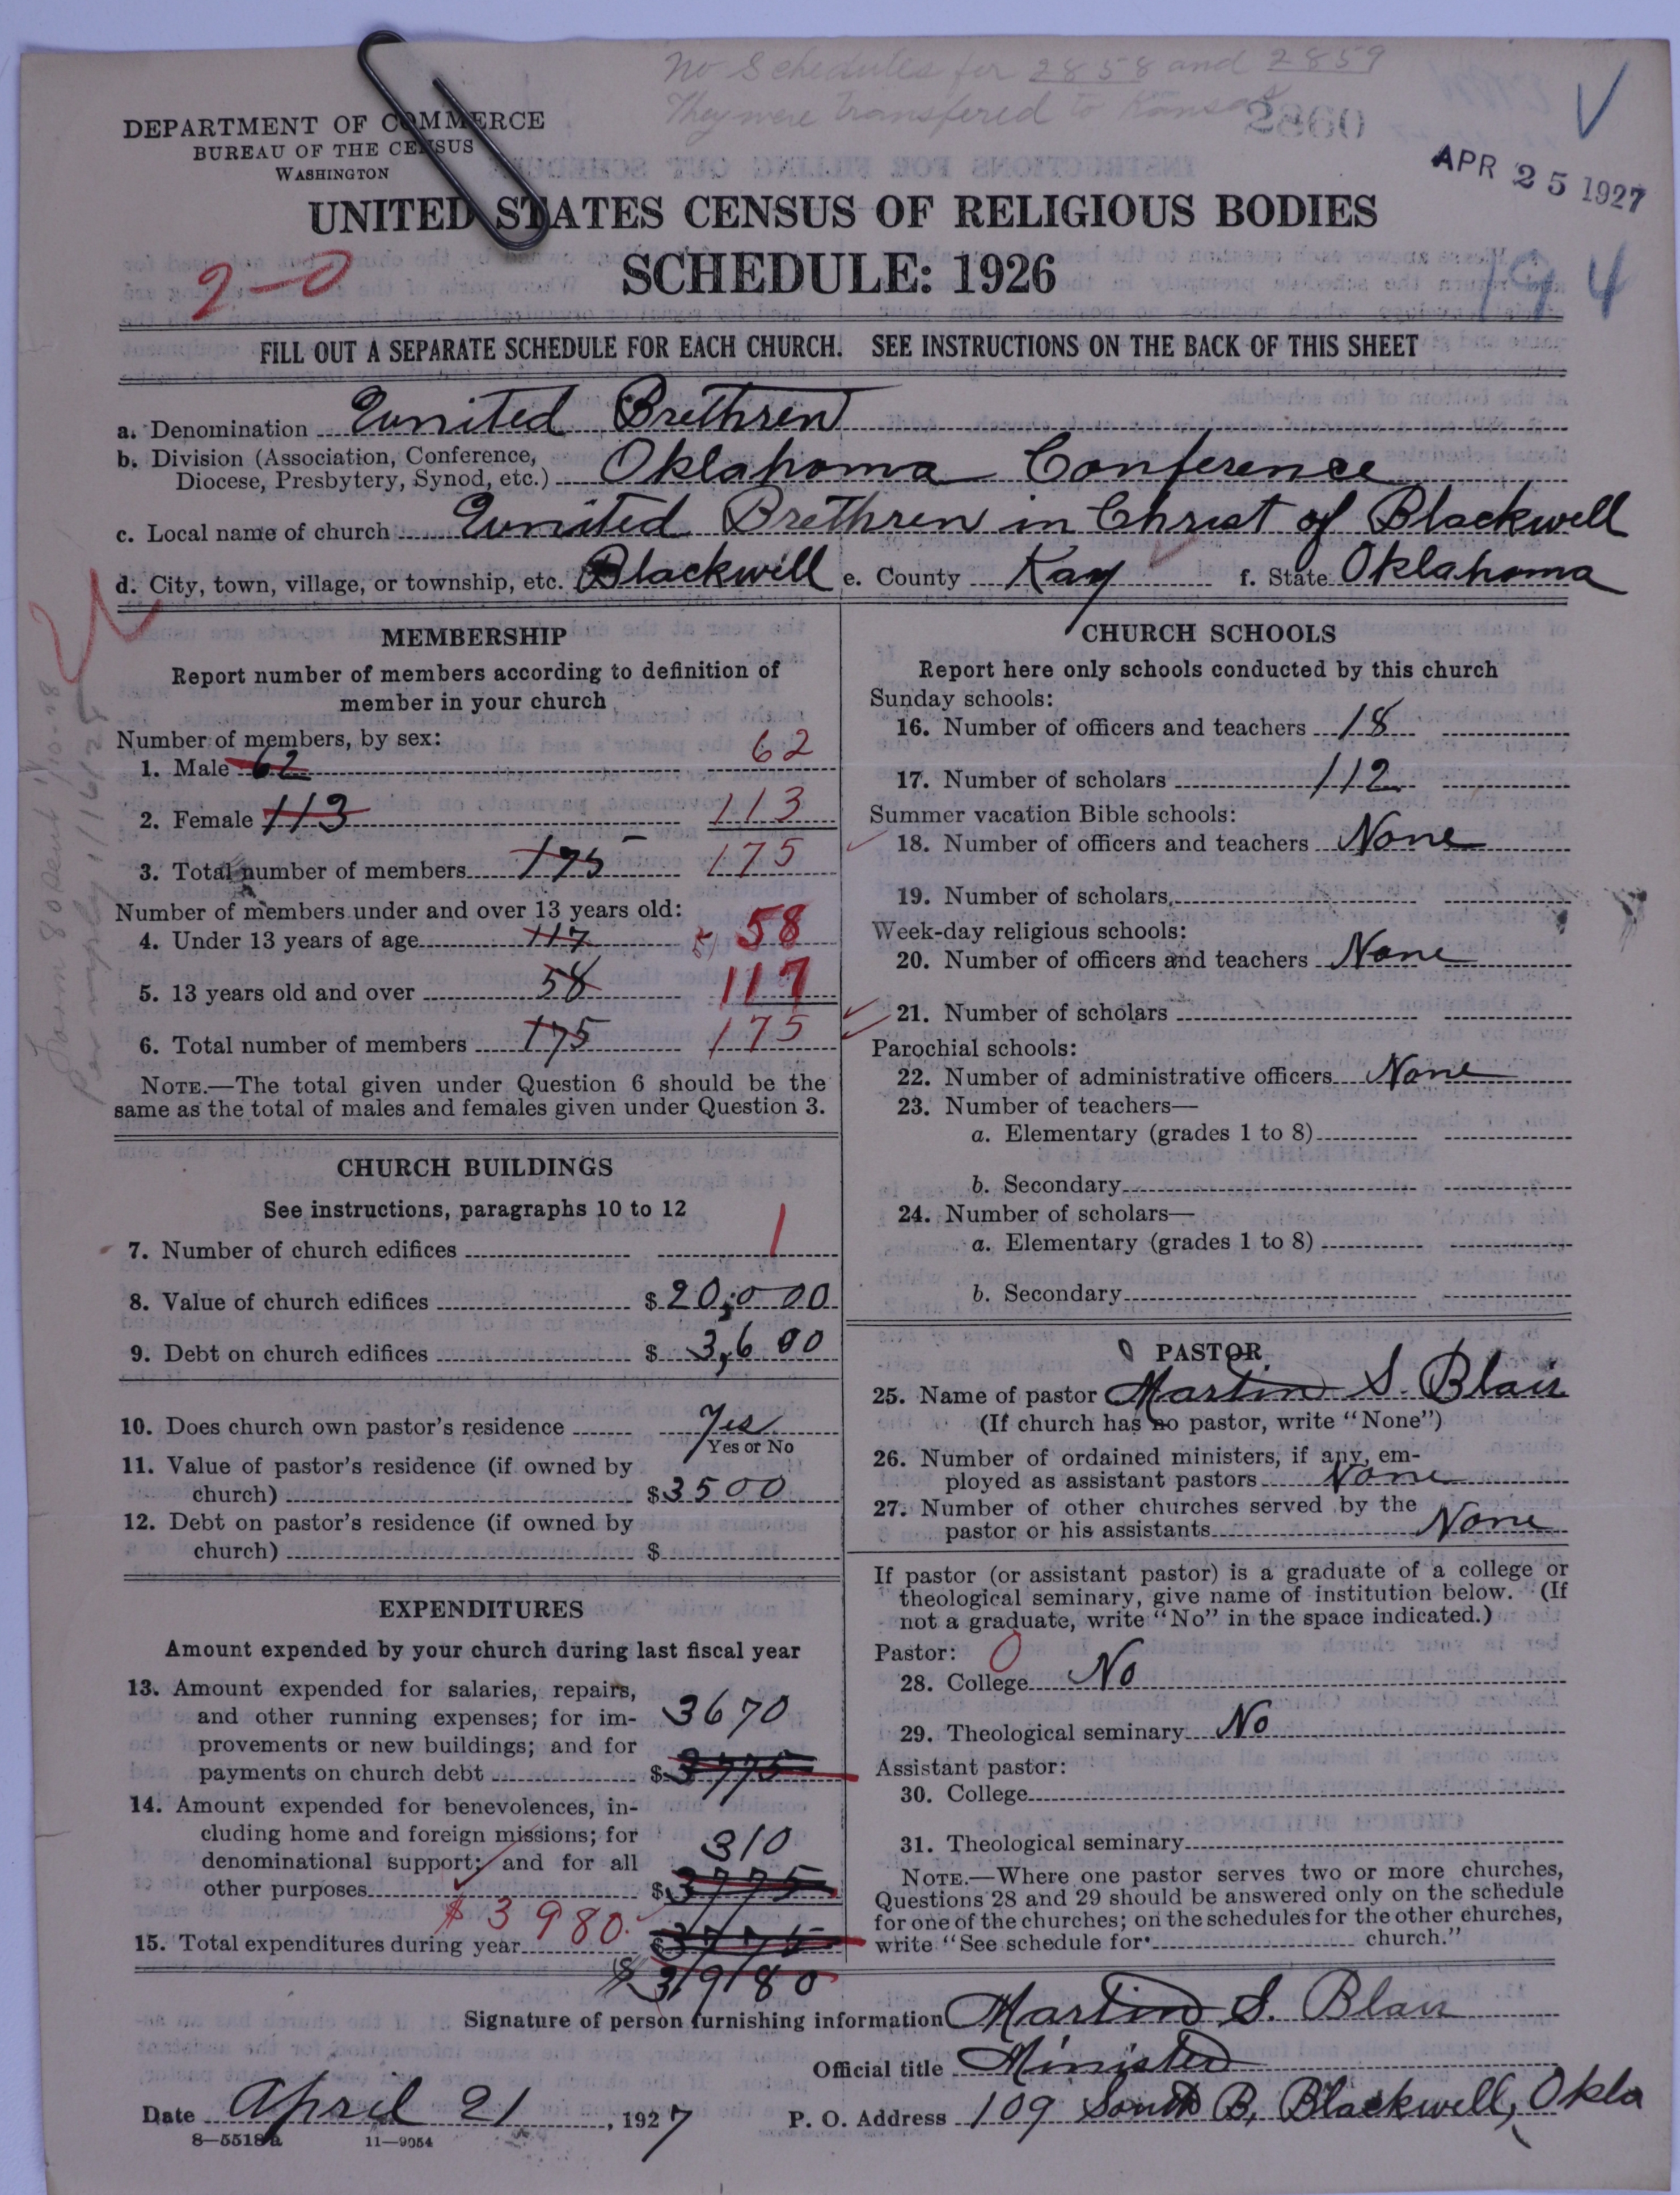 No Schedules for 2858 and 2859
They were transfered to Kansas
2860
DEPARTMENT OF COMMERCE
BUREAU OF THE CENSUS
WASHINGTON
APR 25 1927
UNITED STATES CENSUS OF RELIGIOUS BODIES
2-0
SCHEDULE: 1926
194
FILL OUT A SEPARATE SCHEDULE FOR EACH CHURCH. SEE INSTRUCTIONS ON THE BACK OF THIS SHEET
a. Denomination United Brethren
b. Division (Association, Conference,
Diocese, Presbytery, Synod, etc.) Oklahoma Conference
c. Local name of church United Brethren in Christ of Blackwell
d. City, town, village, or township, etc. Blackwell e. County Kay f. State Oklahoma
MEMBERSHIP
Report number of members according to definition of
member in your church
Number of members, by sex:
1. Male 62 62
2. Female 113 113
3. Total number of members 175 175
Number of members under and over 13 years old:
4. Under 13 years of age 117 58
5. 13 years old and over 58 117
6. Total number of members 175 175
NOTE.—The total given under Question 6 should be the
same as the total of males and females given under Question 3.
CHURCH BUILDINGS
See instructions, paragraphs 10 to 12
7. Number of church edifices 1
8. Value of church edifices $ 20,000
9. Debt on church edifices $ 3,600
10. Does church own pastor's residence Yes
Yes or No
11. Value of pastor's residence (if owned by
church) $ 3500
12. Debt on pastor's residence (if owned by
church) $
EXPENDITURES
Amount expended by your church during last fiscal year
13. Amount expended for salaries, repairs,
and other running expenses; for im- 3670
provements or new buildings; and for
payments on church debt $ 3775
14. Amount expended for benevolences, in-
cluding home and foreign missions; for 310
denominational support; and for all
other purposes $ 3775
$3980.
15. Total expenditures during year $ 3775
$ 3980
CHURCH SCHOOLS
Report here only schools conducted by this church
Sunday schools:
16. Number of officers and teachers 18
17. Number of scholars 112
Summer vacation Bible schools:
18. Number of officers and teachers None
19. Number of scholars
Week-day religious schools:
20. Number of officers and teachers None
21. Number of scholars
Parochial schools:
22. Number of administrative officers None
23. Number of teachers—
a. Elementary (grades 1 to 8)
b. Secondary
24. Number of scholars—
a. Elementary (grades 1 to 8)
b. Secondary
PASTOR
25. Name of pastor Martin S. Blair
(If church has no pastor, write "None")
26. Number of ordained ministers, if any, em-
ployed as assistant pastors None
27. Number of other churches served by the
pastor or his assistants None
If pastor (or assistant pastor) is a graduate of a college or
theological seminary, give name of institution below. (If
not a graduate, write "No" in the space indicated.)
Pastor: 0
28. College No
29. Theological seminary No
Assistant pastor:
30. College
31. Theological seminary
NOTE.—Where one pastor serves two or more churches,
Questions 28 and 29 should be answered only on the schedule
for one of the churches; on the schedules for the other churches,
write "See schedule for church."
Signature of person furnishing information Martin S. Blair
Official title Minister
Date April 21, 1927 P. O. Address 109 South B, Blackwell, Okla
8—5518a 11—9054